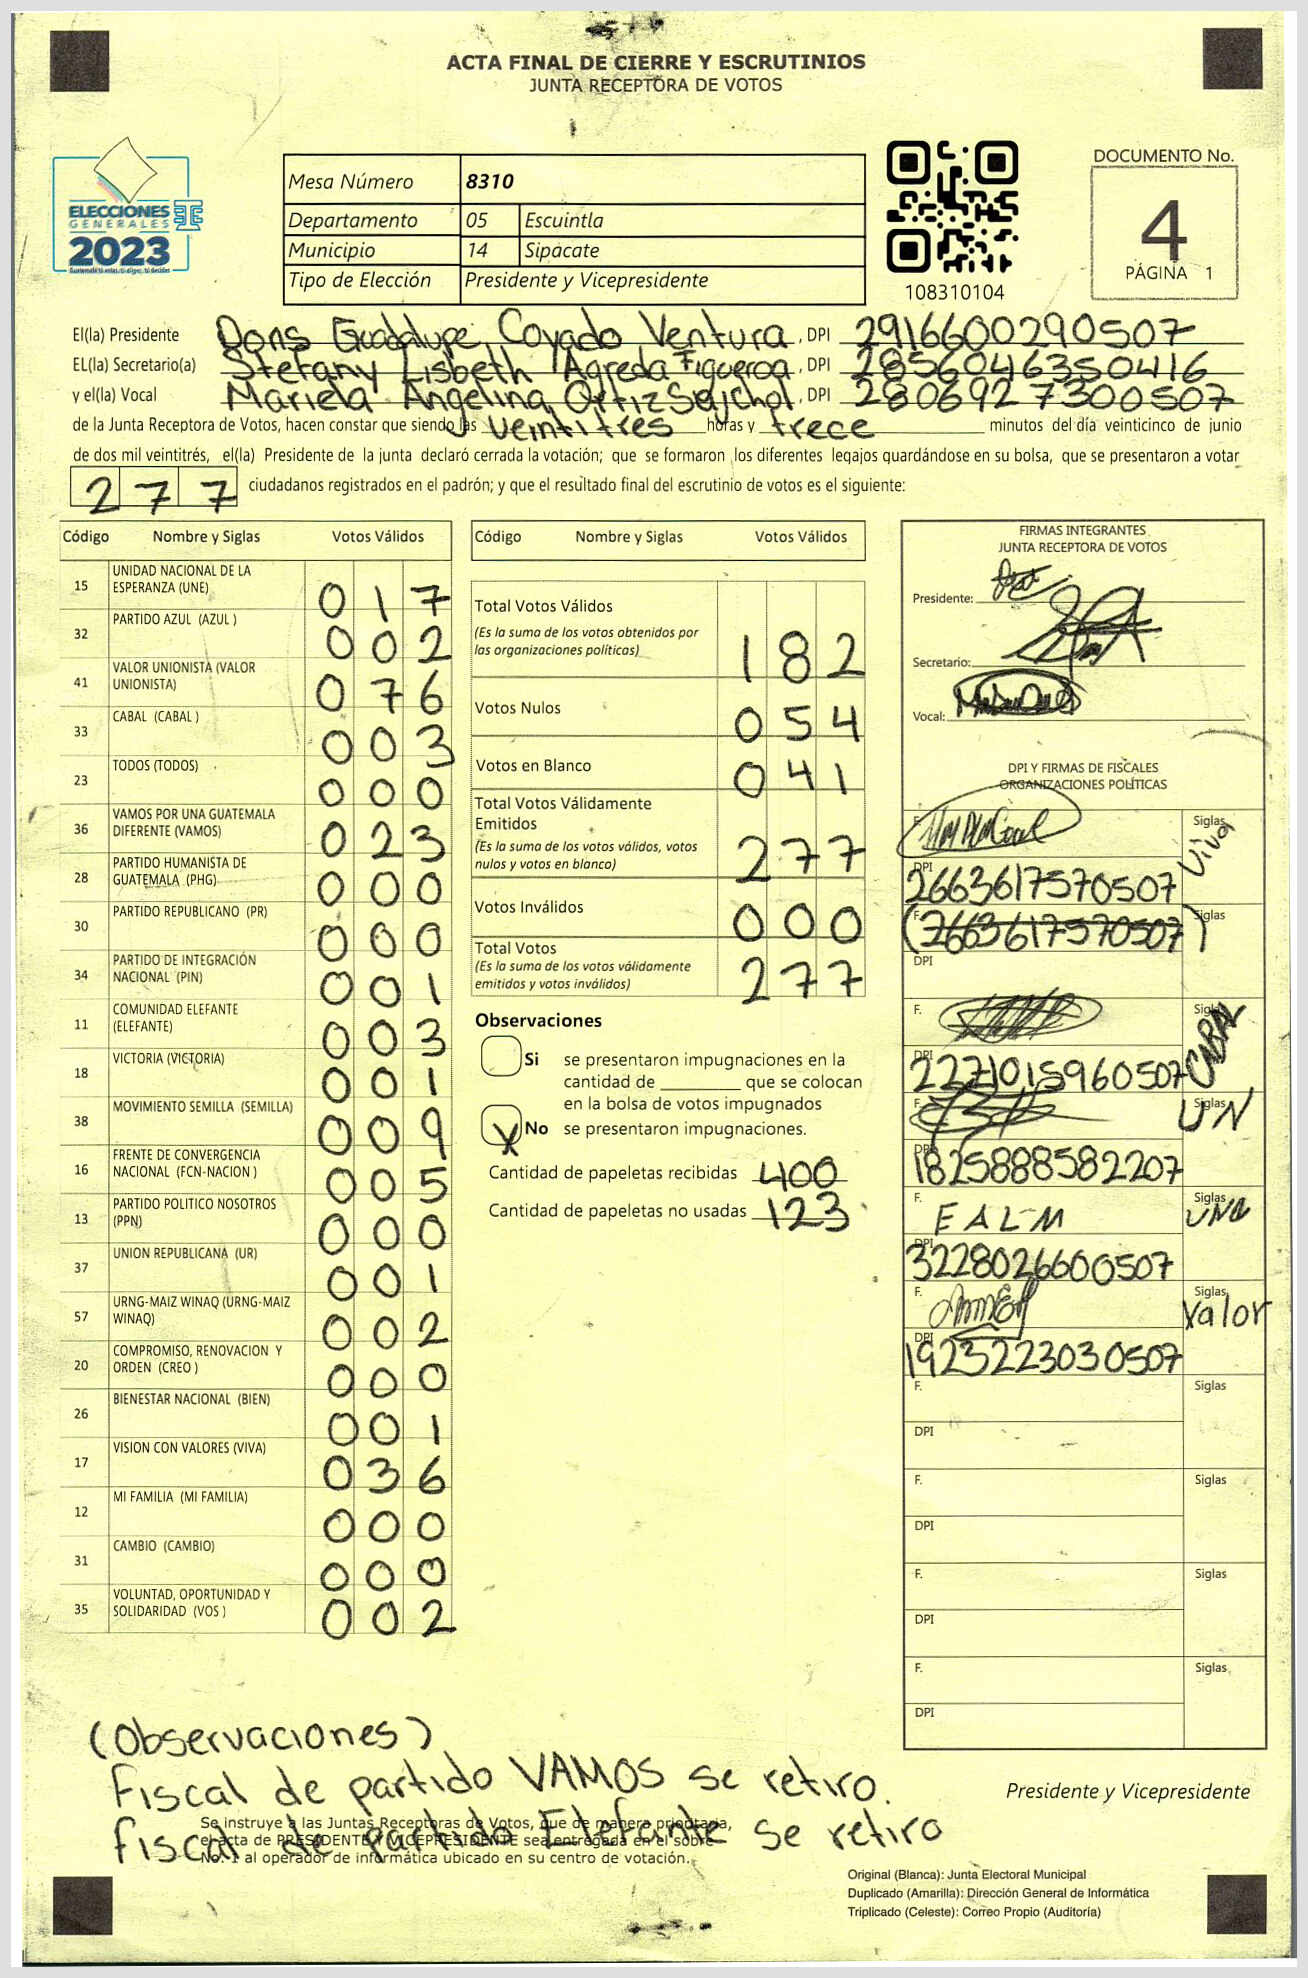 ACTA FINAL DE CIERRE Y ESCRUTINIOS
JUNTA RECEPTORA DE VOTOS
ELECCIONES
GENERALES
2023
Mesa Número 8310
Departamento 05 Escuintla
Municipio 14 Sipacate
Tipo de Elección Presidente y Vicepresidente
108310104
DOCUMENTO No.
4
PÁGINA 1
El(la) Presidente Doris Guadalupe Coyado Ventura, DPI 2916600290507
EL(la) Secretario(a) Stefany Lisbeth Agreda Figueroa, DPI 2856046350416
y el(la) Vocal Mariela Angelina Ortiz, DPI 2806927300507
de la Junta Receptora de Votos, hacen constar que siendo las veintitres horas y trece minutos del día veinticinco de junio
de dos mil veintitrés, el(la) Presidente de la junta declaró cerrada la votación; que se formaron los diferentes legajos guardándose en su bolsa, que se presentaron a votar
277 ciudadanos registrados en el padrón; y que el resultado final del escrutinio de votos es el siguiente:
Código Nombre y Siglas Votos Válidos
15 UNIDAD NACIONAL DE LA
ESPERANZA (UNE) 017
32 PARTIDO AZUL (AZUL ) 002
41 VALOR UNIONISTA (VALOR
UNIONISTA) 076
33 CABAL (CABAL ) 003
23 TODOS (TODOS) 000
36 VAMOS POR UNA GUATEMALA
DIFERENTE (VAMOS) 023
28 PARTIDO HUMANISTA DE
GUATEMALA (PHG) 000
30 PARTIDO REPUBLICANO (PR) 000
34 PARTIDO DE INTEGRACIÓN
NACIONAL (PIN) 001
11 COMUNIDAD ELEFANTE
(ELEFANTE) 003
18 VICTORIA (VICTORIA) 001
38 MOVIMIENTO SEMILLA (SEMILLA) 009
16 FRENTE DE CONVERGENCIA
NACIONAL (FCN-NACION ) 005
13 PARTIDO POLITICO NOSOTROS
(PPN) 000
37 UNION REPUBLICANA (UR) 001
57 URNG-MAIZ WINAQ (URNG-MAIZ
WINAQ) 002
20 COMPROMISO, RENOVACION Y
ORDEN (CREO ) 000
26 BIENESTAR NACIONAL (BIEN) 001
17 VISION CON VALORES (VIVA) 036
12 MI FAMILIA (MI FAMILIA) 000
31 CAMBIO (CAMBIO) 000
35 VOLUNTAD, OPORTUNIDAD Y
SOLIDARIDAD (VOS ) 002
Código Nombre y Siglas Votos Válidos
Total Votos Válidos
(Es la suma de los votos obtenidos por
las organizaciones políticas) 182
Votos Nulos 054
Votos en Blanco 041
Total Votos Válidamente
Emitidos
(Es la suma de los votos válidos, votos
nulos y votos en blanco) 277
Votos Inválidos 000
Total Votos
(Es la suma de los votos válidamente
emitidos y votos inválidos) 277
Observaciones
Si se presentaron impugnaciones en la
cantidad de ________ que se colocan
en la bolsa de votos impugnados
X No se presentaron impugnaciones.
Cantidad de papeletas recibidas 400
Cantidad de papeletas no usadas 123
FIRMAS INTEGRANTES
JUNTA RECEPTORA DE VOTOS
Presidente:
Secretario:
Vocal:
DPI Y FIRMAS DE FISCALES
ORGANIZACIONES POLÍTICAS
F. Siglas Viva
DPI 2663617570507
F. (2663617570507) Siglas
DPI
F. Siglas CABAL
DPI 22271015960507
F. Siglas UN
DPI 1825888582207
F. EALM Siglas UNE
DPI 3228026600507
F. Siglas Valor
DPI 1923223030507
F. Siglas
DPI
F. Siglas
DPI
F. Siglas
DPI
F. Siglas
DPI
(Observaciones)
Fiscal de partido VAMOS se retiro.
Fiscal de partido Elefante se retiro
Se instruye a las Juntas Receptoras de Votos, que de manera prioritaria,
el acta de PRESIDENTE Y VICEPRESIDENTE sea entregada en el sobre
No. 1 al operador de informática ubicado en su centro de votación.
Presidente y Vicepresidente
Original (Blanca): Junta Electoral Municipal
Duplicado (Amarilla): Dirección General de Informática
Triplicado (Celeste): Correo Propio (Auditoría)